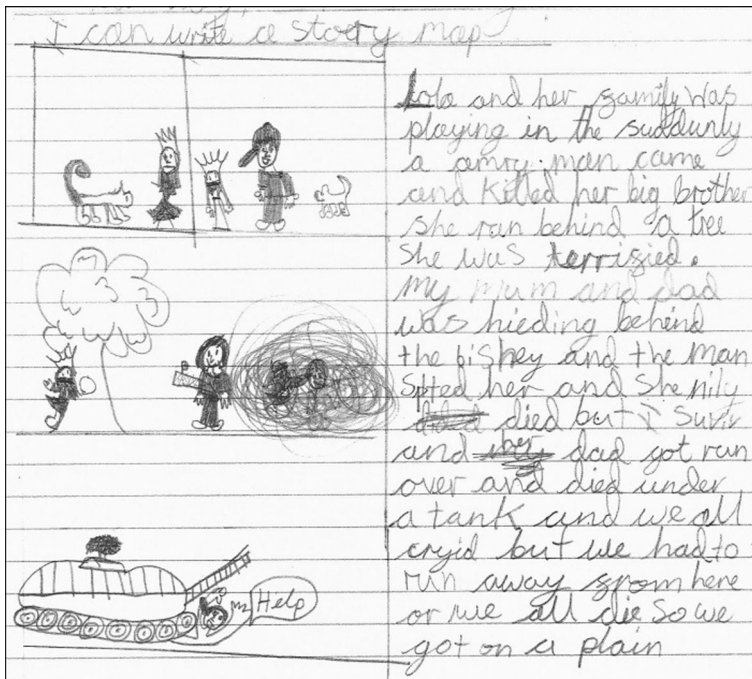 I can write a story map
Lola and her gamily was
playing in the suddunly
a amry man came
and killed her big brother
she ran behind a tree
she was terrigied.
my mum and dad
was hieding behind
the bishey and the man
spted her and she nily
died but I Surviv
and her dad got run
over and died under
a tank and we all
cryid but we had to
run away grom here
or we all die So we
got on a plain
Help